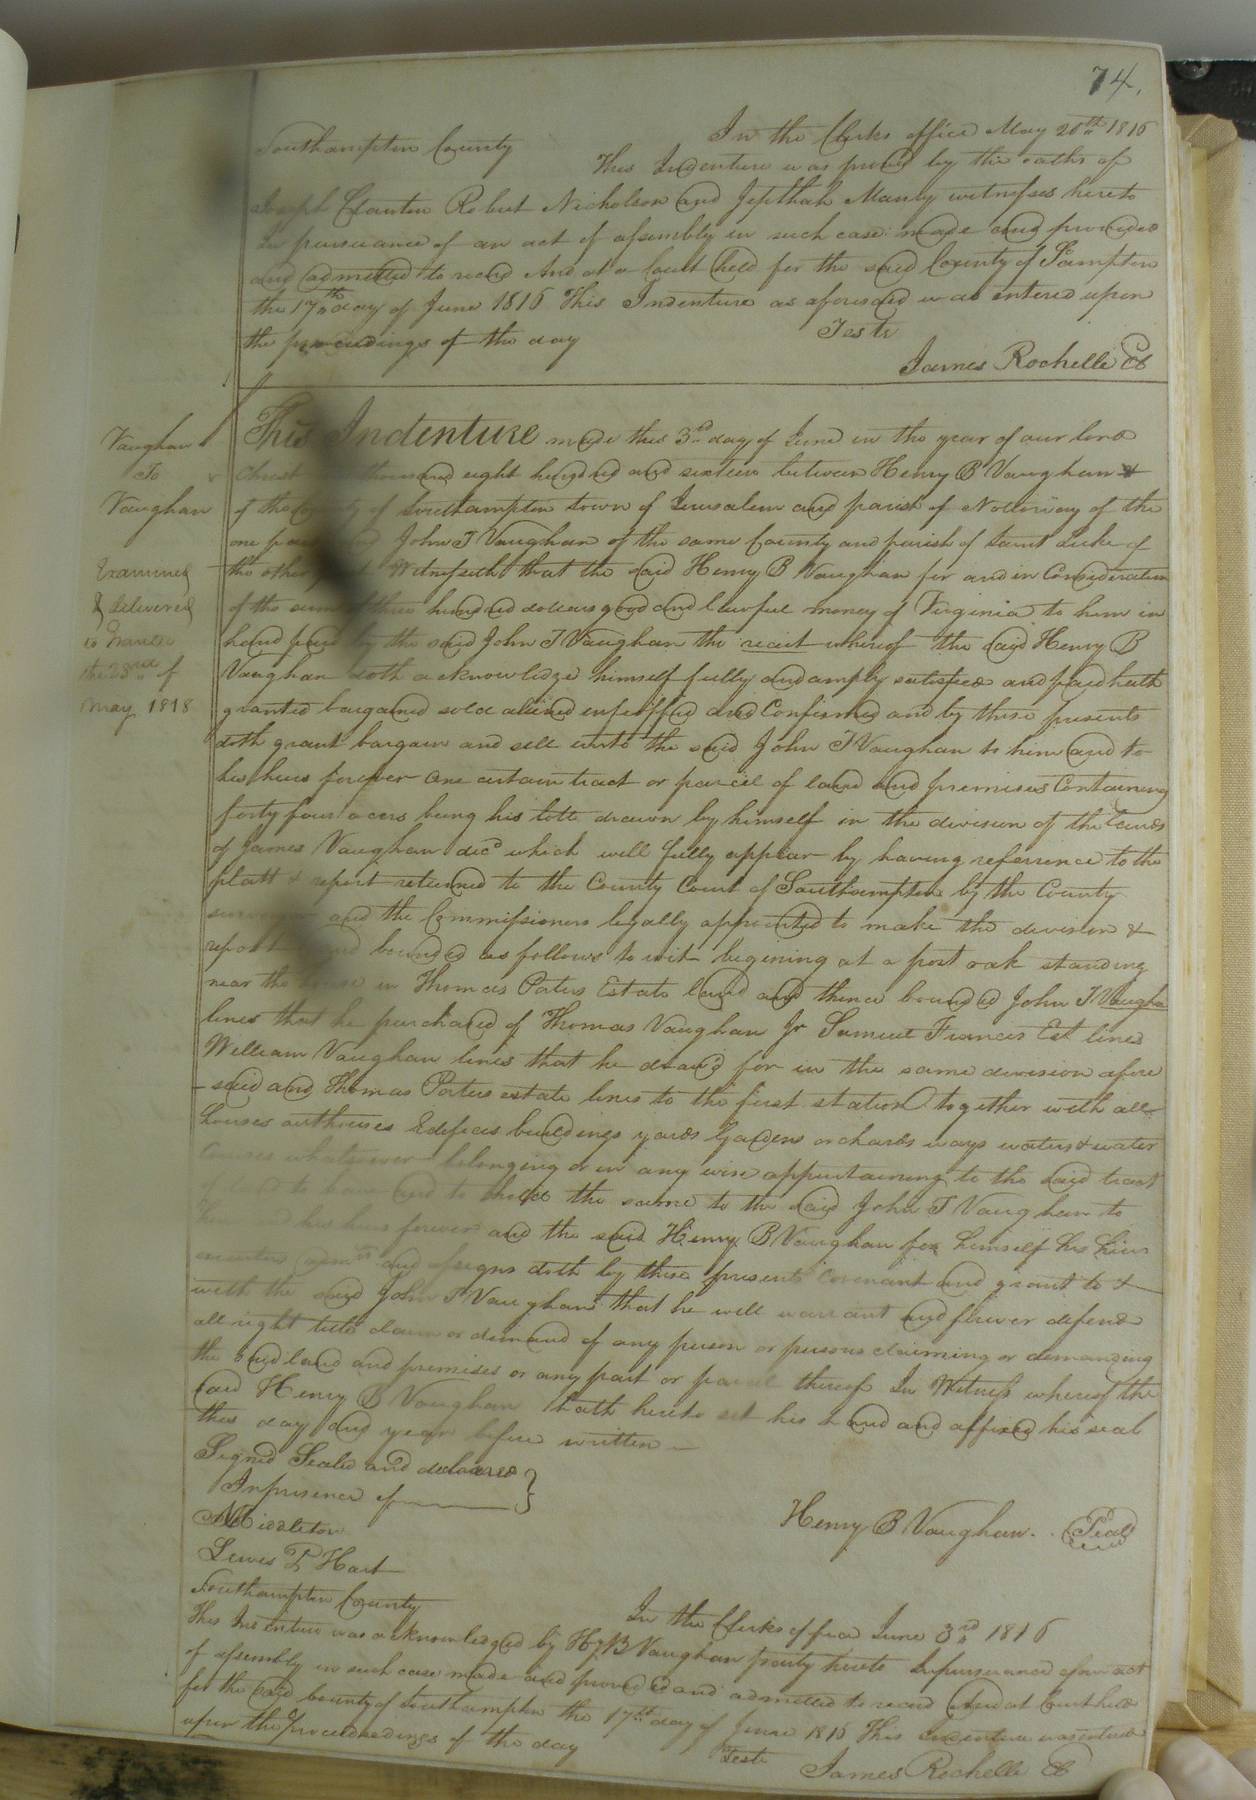 74.
In the Clerks office May 20th 1816
Southampton County
This Indenture was proved by the oaths of
Joseph Clanton Robert Nicholson and Jepthah Manly witnesses hereto
In pursuance of an act of assembly in such case made and provided
and admitted to record And at a Court held for the said County of Sampton
the 17th day of June 1816 This Indenture as aforesaid was entered upon
the proceedings of the day
Teste
James Rochelle CC
Vaughan
To
Vaughan
Examined
& delivered
to Grantee
the 23rd of
May 1818
This Indenture made this 3rd day of June in the year of our lord
Christ thousand eight hundred and sixteen between Henry B Vaughan
of the County of Southampton town of Jerusalem and parish of Nottoway of the
one part and John T Vaughan of the same County and parish of Saint Luke of
the other part Witnesseth that the said Henry B Vaughan for and in Consideration
of the sum of three hundred dollars good and lawful money of Virginia to him in
hand paid by the said John T Vaughan the reciet whereof the said Henry B
Vaughan doth acknowledge himself fully and amply satisfied and paid hath
granted bargained sold aliened enfeoffed and Confirmed and by these presents
doth grant bargain and sell unto the said John T Vaughan to him and to
his heirs forever One certain tract or parcel of land and premises Containing
forty four acers being his lott drawn by himself in the division of the lands
of James Vaughan decd which will fully appear by having referrence to the
platt & report returned to the County Court of Southampton by the County
surveyor and the Commissioners legally appointed to make the devision &
report and bounded as follows to wit begining at a post oak standing
near the house in Thomas Porters Estate land and thence bounded John T. Vaughan
lines that he purchased of Thomas Vaughan Jr Samuel Francis Est lines
William Vaughan lines that he draw'd for in the same devision afore
-said and Thomas Porters estate lines to the first station together with all
houses outhouses Edifices buildings yards Gardens orchards ways waters & water
Courses whatsoever belonging or in any wise appurtaining to the said tract
to have and to hold the same to the said John T Vaughan to
him and his heirs forever and the said Henry B Vaughan for himself his heirs
executors admrs and assigns doth by these presents Covenant and grant to &
with the said John T Vaughan that he will warrant and forever defend
all right title claim or demand of any person or persons claiming or demanding
the said land and premises or any part or parcel thereof In Witness whereof the
said Henry B Vaughan hath hereto set his hand and affixed his seal
this day and year before written
Signed Sealed and declared
In presence of
Middleton
Henry B Vaughan . . Seal
Lewis T Hart
Southampton County
In the Clerks office June 3rd 1816
This Indenture was acknowledged by Hy B Vaughan party hereto In pursuance of an act
of assembly in such case made and provided and admitted to record And at Court held
for the said County of Southampton the 17th day of June 1816 This indenture was entered
upon the proceedings of the day
Teste
James Rochelle CC